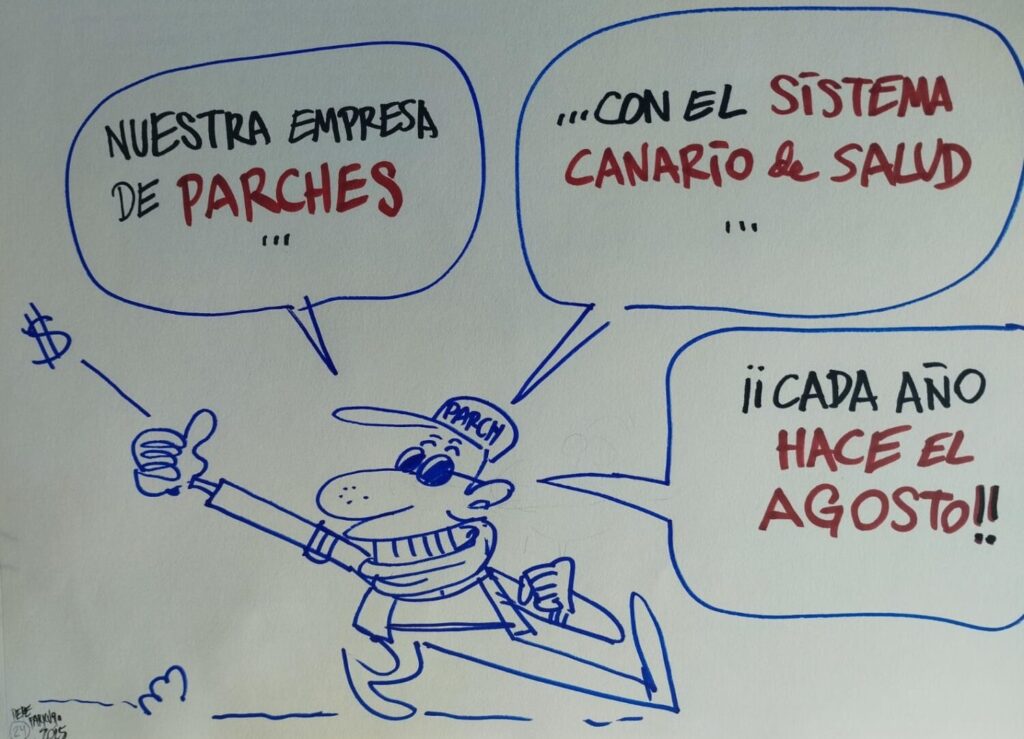 NUESTRA EMPRESA
DE PARCHES
...
...CON EL SISTEMA
CANARIO de SALUD
...
¡¡CADA AÑO
HACE EL
AGOSTO!!
$
PARCH
2025